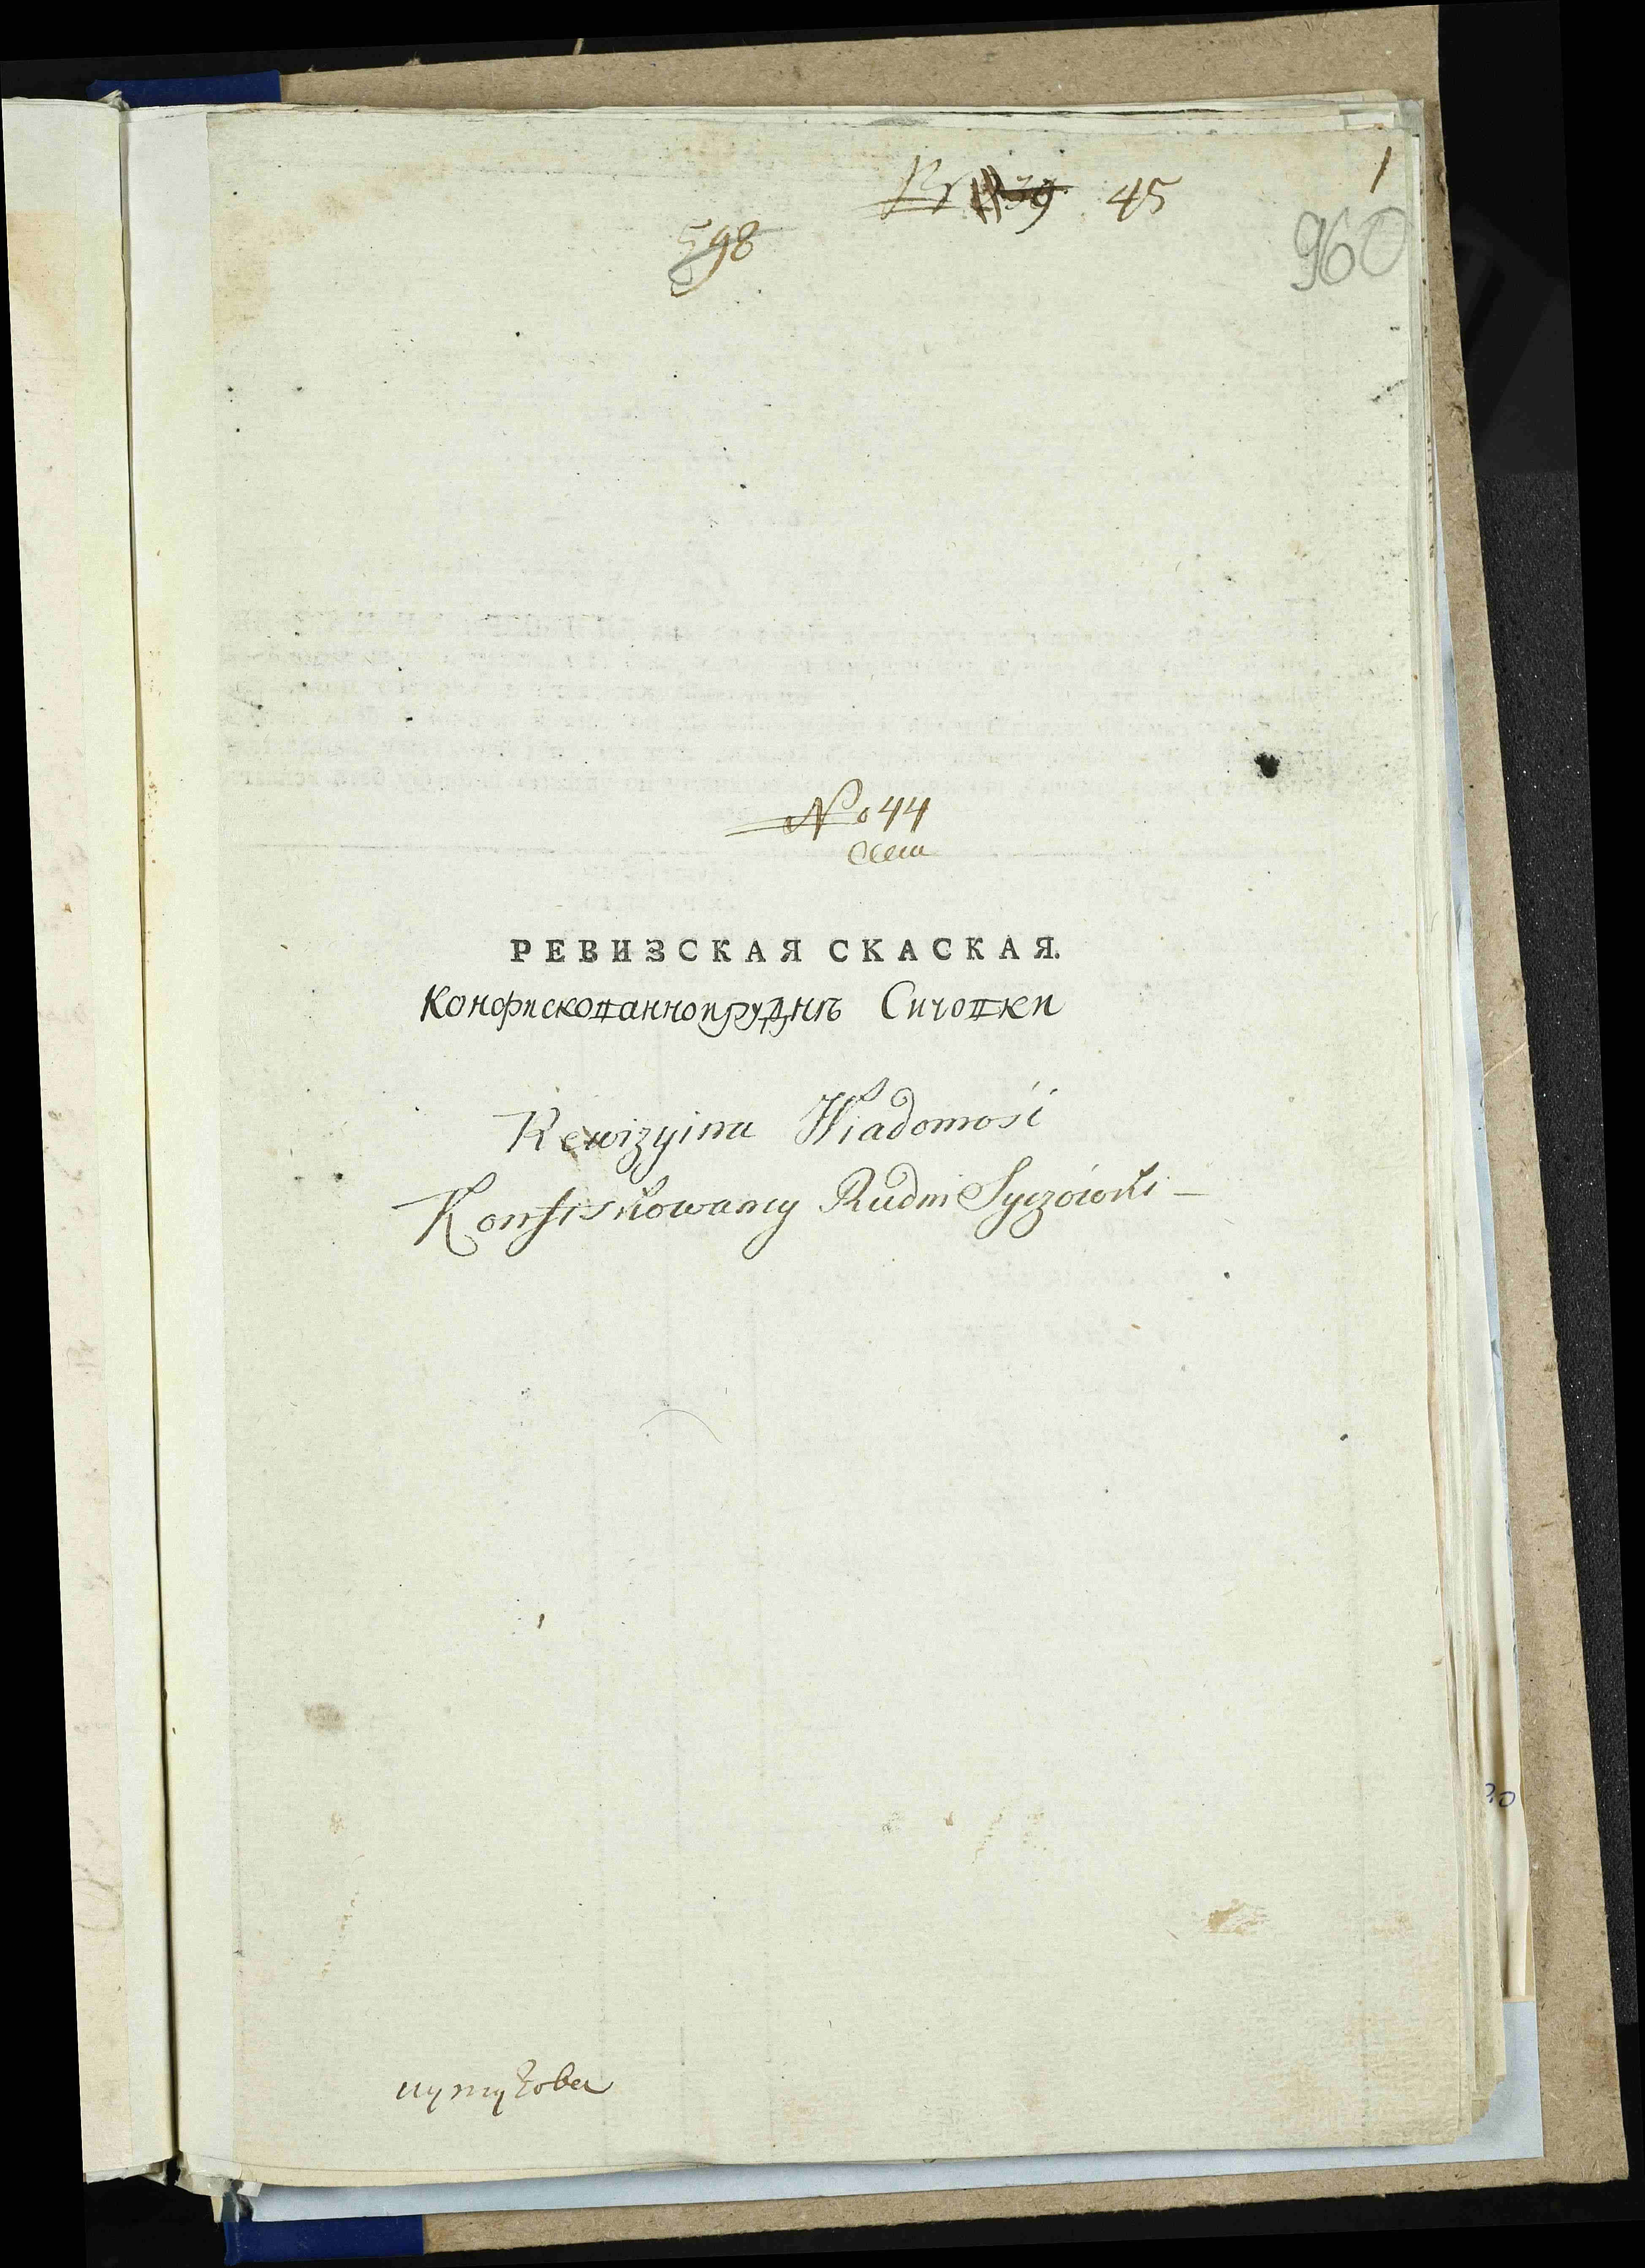 1
№ 39 45
598
960
№ 44
РЕВИЗСКАЯ СКАСКАЯ.
Конфискованной рудне Сичовки
Rewizyina Wiadomość
Konfiskowaney Rudni Syczówki -
30